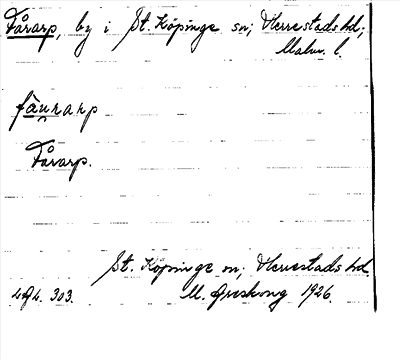 Fårarp, by i St. Köpinge sn; Herrestads hd;
Malm. l.
fåurarp
Fårarp.
St. Köpinge sn; Herrestads hd.
303. M. 1926.